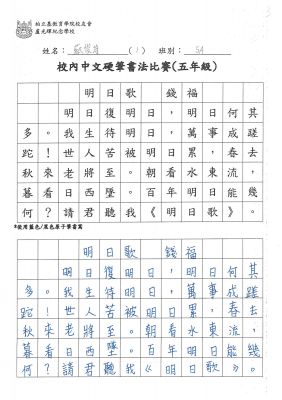 柏立基教育學院校友會
盧光輝紀念學校
姓名： ( 1 ) 班別： 5A
校內中文硬筆書法比賽(五年級)
明日歌 錢福
明日復明日，明日何其
多。我生待明日，萬事成蹉
跎！世人苦被明日累，春去
秋來老將至。朝看水東流，
暮看日西墜。百年明日能幾
何？請君聽我《明日歌》。
*使用藍色/黑色原子筆書寫
明日歌 錢福
明日復明日，明日何其
多。我生待明日，萬事成蹉
跎！世人苦被明日累，春去
秋來老將至。朝看水東流，
暮看日西墜。百年明日能幾
何？請君聽我《明日歌》。